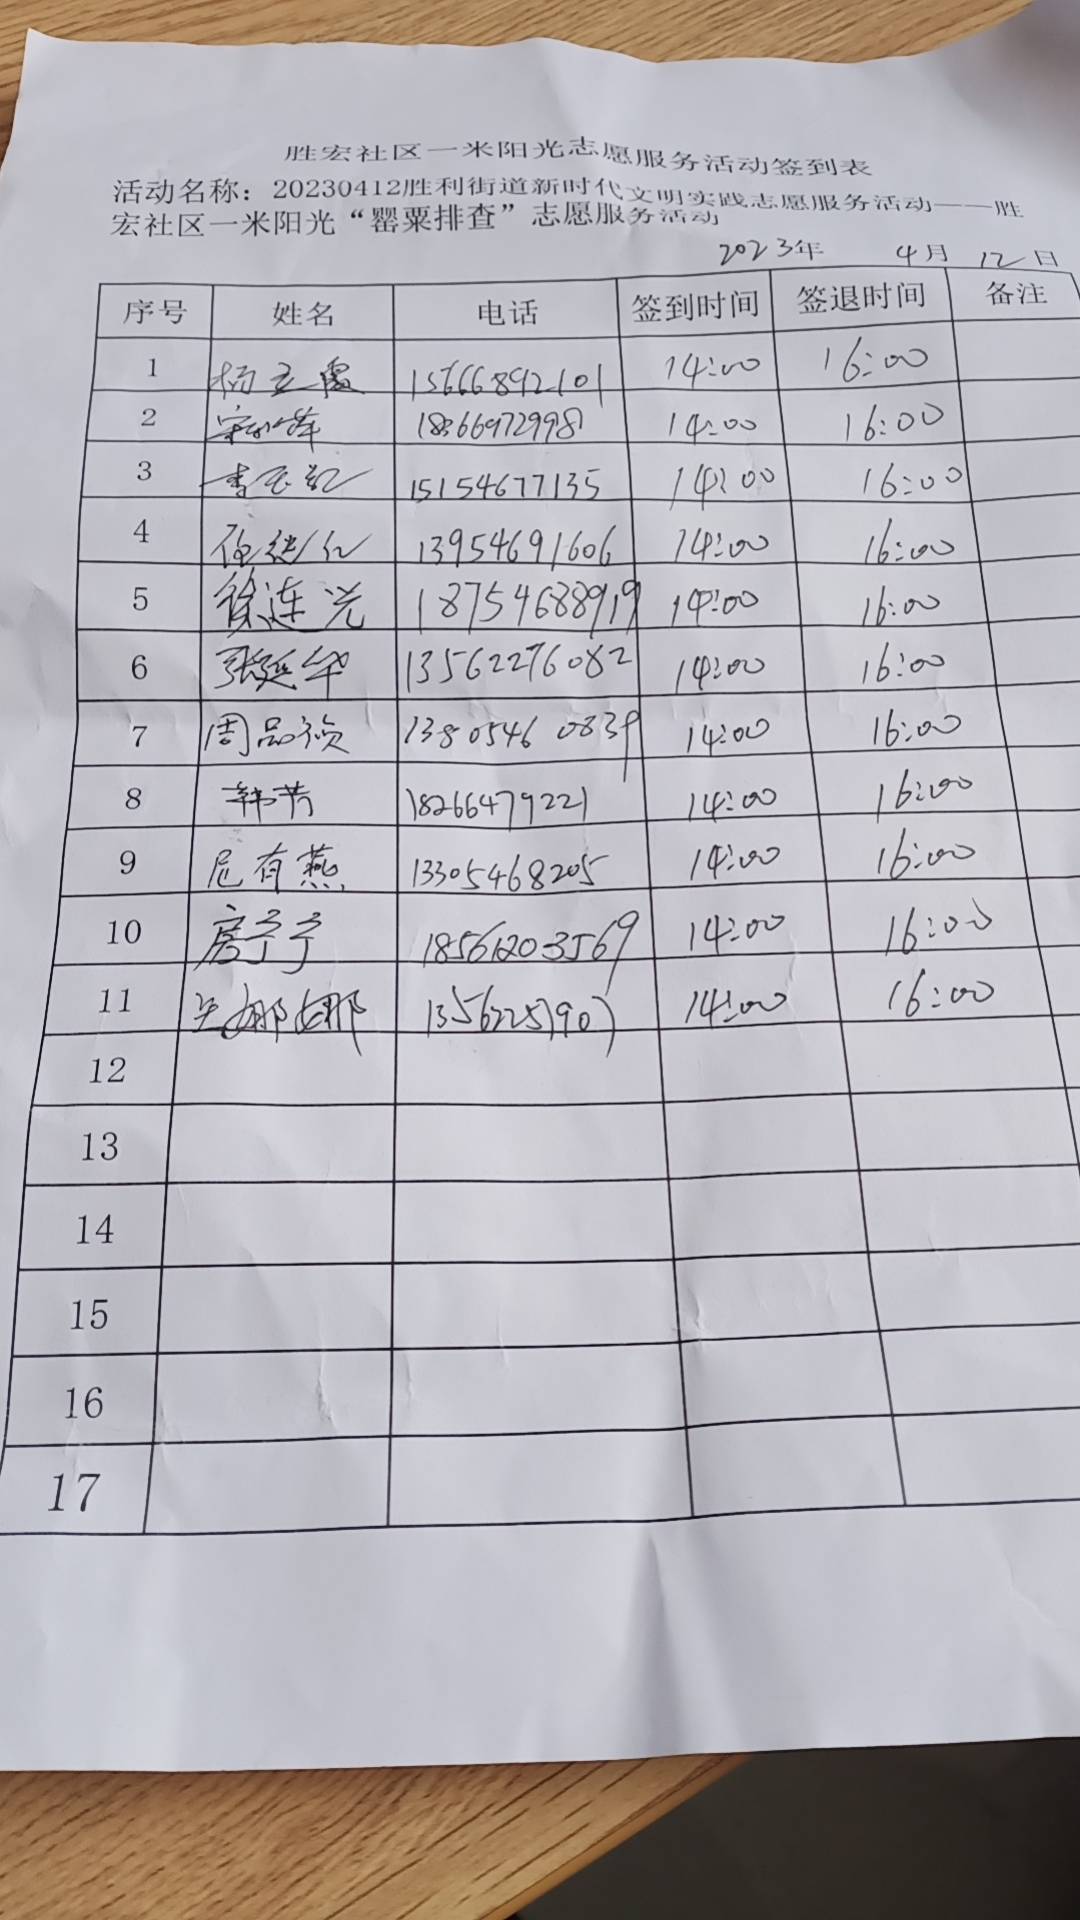 胜宏社区一米阳光志愿服务活动签到表
活动名称：20230412胜利街道新时代文明实践志愿服务活动——胜
宏社区一米阳光“罂粟排查”志愿服务活动
2023年 4月 12日
序号 姓名 电话 签到时间 签退时间 备注
1 杨立霞 15666892101 14:00 16:00
2 18366972998 14:00 16:00
3 15154677135 14:00 16:00
4 13954691606 14:00 16:00
5 徐连光 18754688919 14:00 16:00
6 张延华 13562276082 14:00 16:00
7 周品 13805460839 14:00 16:00
8 韩芳 18266479221 14:00 16:00
9 尼有燕 13305468205 14:00 16:00
10 房宁宁 18561203569 14:00 16:00
11 吴娜娜 13562251907 14:00 16:00
12
13
14
15
16
17